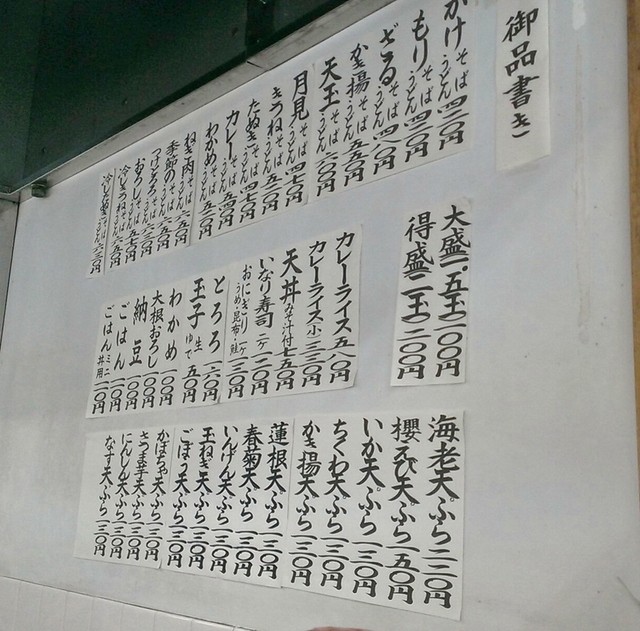 御品書き
かけそばうどん 四二〇円
もりそば 四二〇円
ざるそばうどん 四八〇円
かき揚そばうどん 五五〇円
天玉そばうどん 六〇〇円
月見そばうどん 四七〇円
きつねそばうどん 五二〇円
たぬきそばうどん 四七〇円
カレーそばうどん
わかめそばうどん 五二〇円
ねぎ肉そばうどん 六五〇円
季節のそばうどん
つけとろろそばうどん
おろしそばうどん
冷しきつねそばうどん
冷したぬきそばうどん
大盛(一.五玉)一〇〇円
得盛(二玉)二〇〇円
カレーライス 五八〇円
カレーライス小 三三〇円
天丼みそ汁付 七五〇円
いなり寿司二ヶ 一二〇円
おにぎりうめ・昆布・鮭一ヶ 一三〇円
とろろ 一六〇円
玉子 生ゆで 五〇円
わかめ 一〇〇円
大根おろし 一〇〇円
納豆 一〇〇円
ごはん 一〇〇円
ごはんミニ丼用 一〇〇円
海老天ぷら 二二〇円
櫻えび天ぷら 一五〇円
いか天ぷら 一三〇円
ちくわ天ぷら 一三〇円
かき揚天ぷら 一三〇円
蓮根天ぷら 一三〇円
春菊天ぷら 一三〇円
いんげん天ぷら 一三〇円
玉ねぎ天ぷら 一三〇円
ごぼう天ぷら 一三〇円
かぼちゃ天ぷら 一三〇円
さつま芋天ぷら 一三〇円
にんじん天ぷら 一三〇円
なす天ぷら 一三〇円